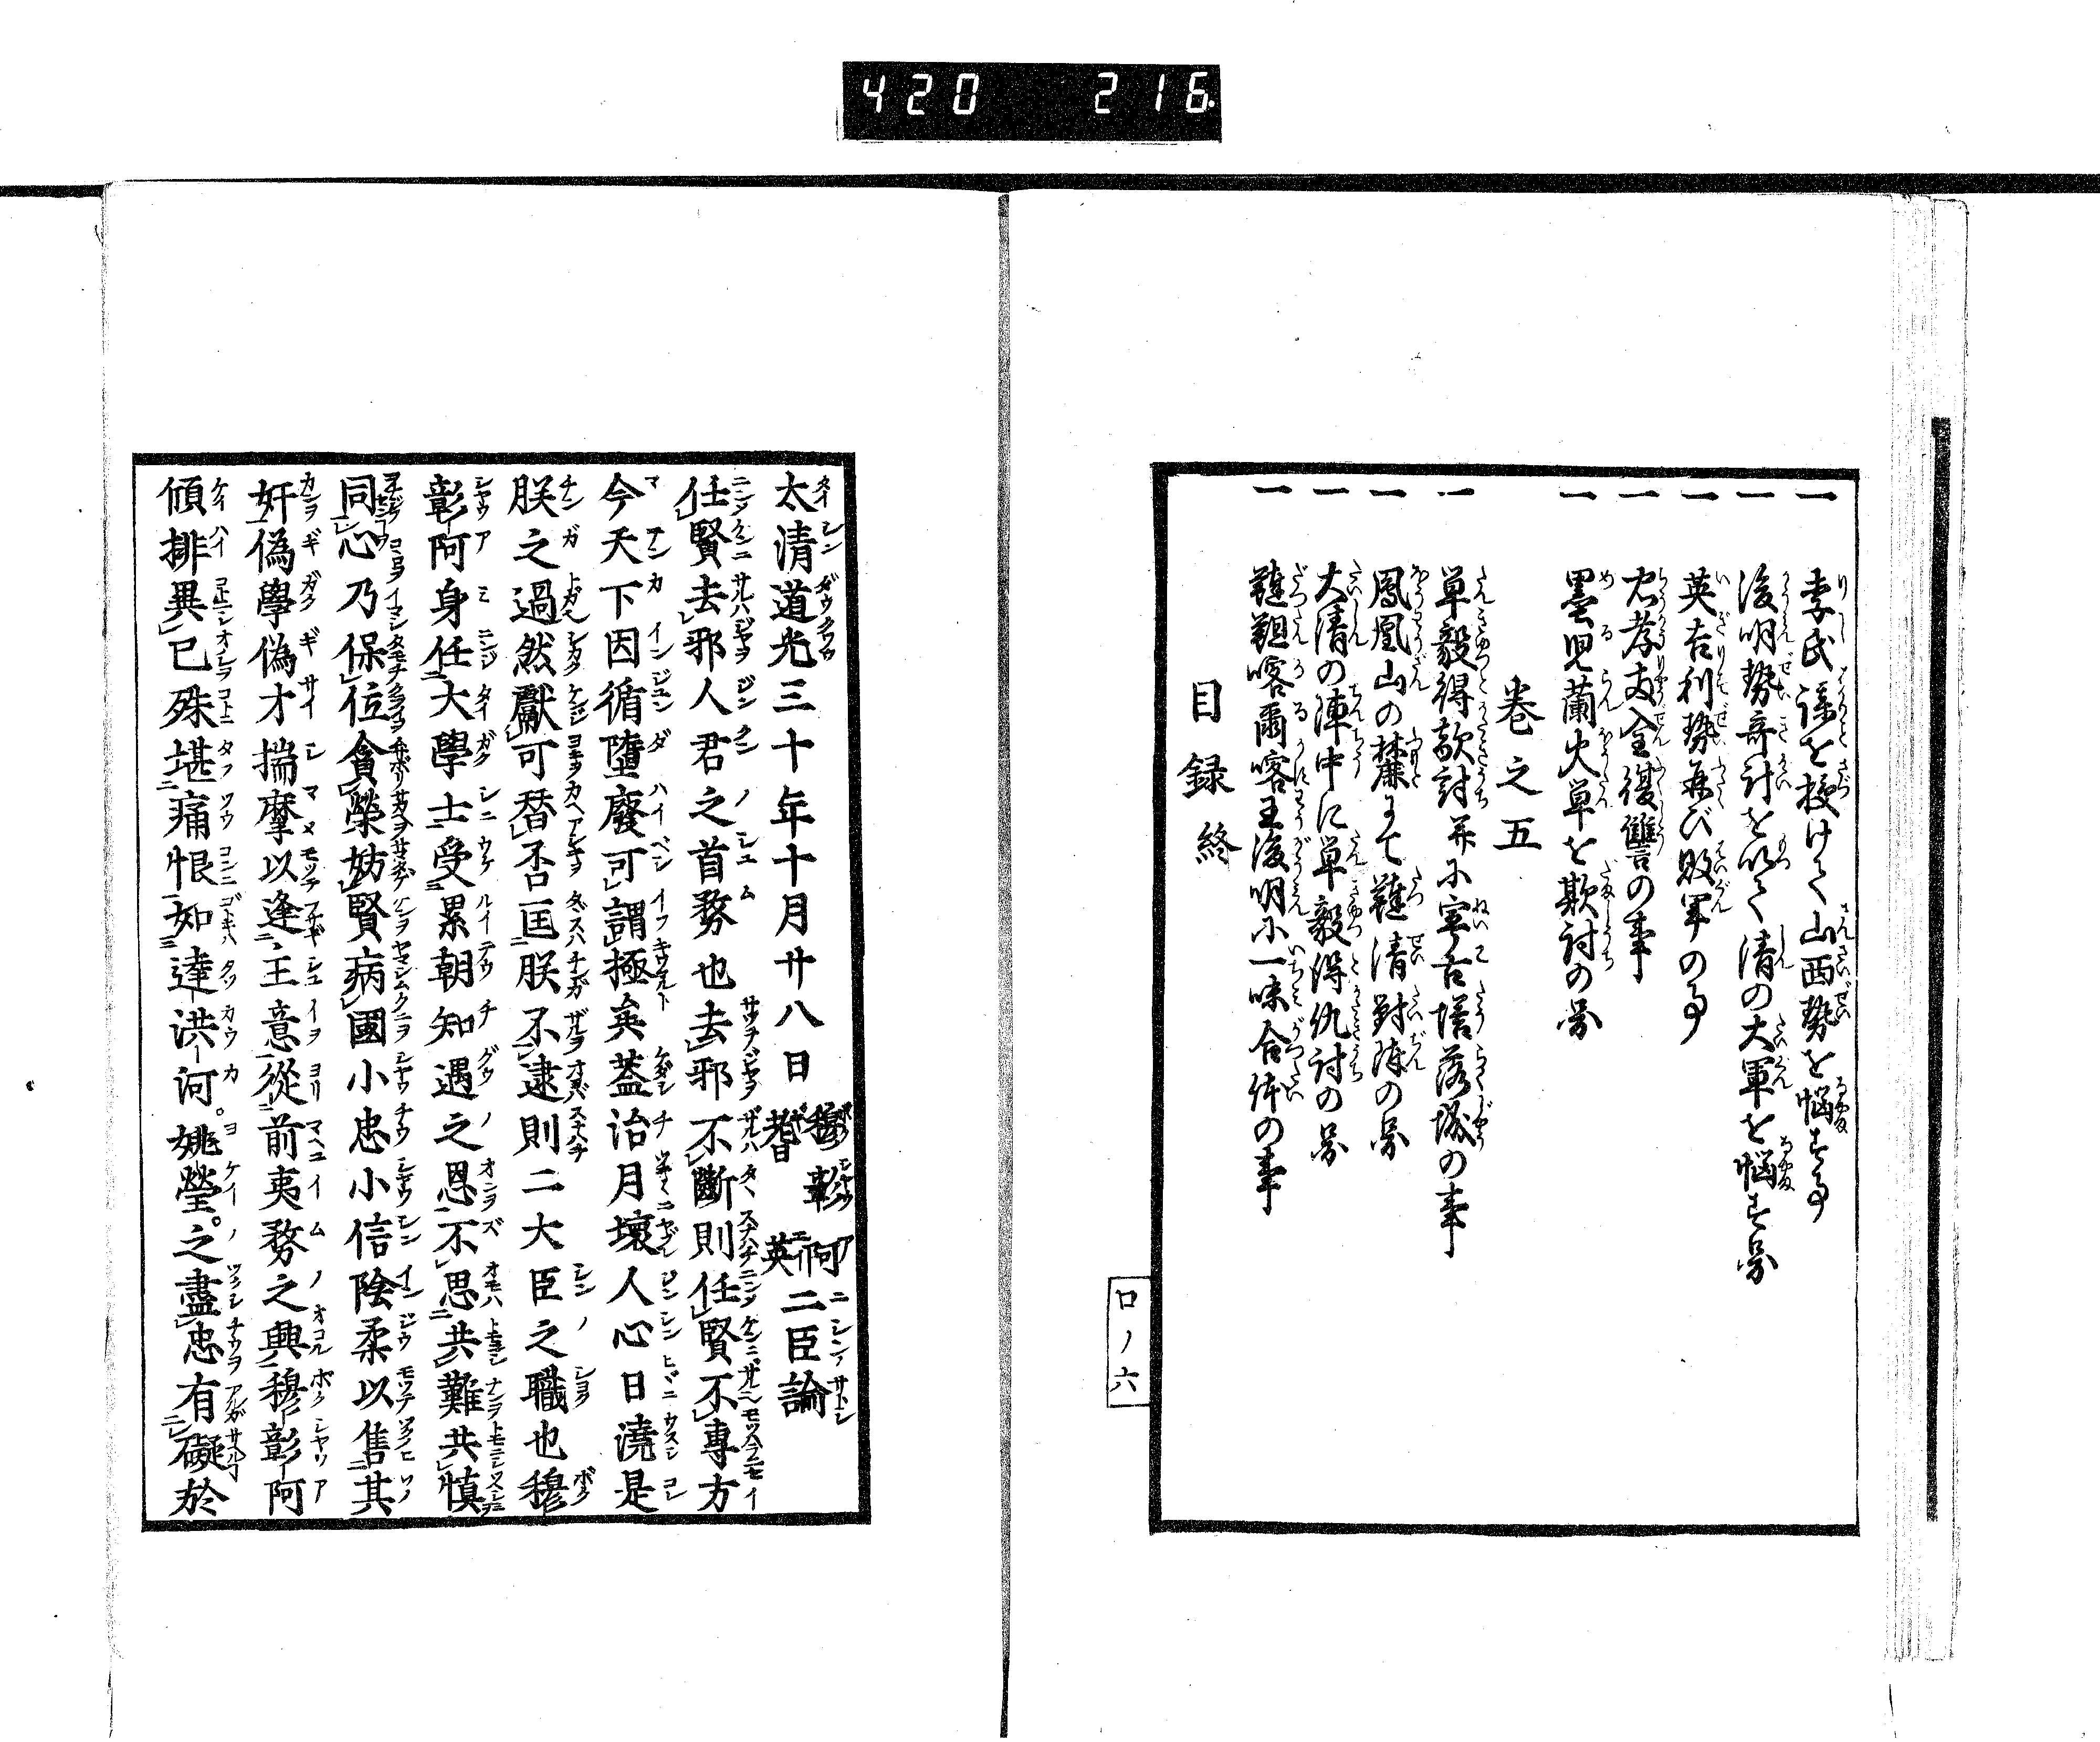 420 216
一 李氏謀を授けて山西勢を悩す事
一 後明勢奇計を以て清の大軍を悩す事
一 英吉利勢再び敗軍の事
一 忠孝両全復讐の事
一 墨児蘭火単を欺討の事
巻之五
一 単毅得欺討并に寧古塔落城の事
一 鳳凰山の麓にて韃清対陣の事
一 大清の陣中に単毅得仇討の事
一 韃靼喀爾喀王後明に一味合体の事
目録終
ロノ六
太清道光三十年十月廿八日穆彰阿耆英二臣論
任賢去邪人君之首務也去邪不斷則任賢不專方
今天下因循墮廢可謂極矣蓋治月壞人心日澆是
朕之過然獻可替否匡朕不逮則二大臣之職也穆
彰阿身任大學士受累朝知遇之恩不思共難共慎
同心乃保位貪榮妨賢病國小忠小信陰柔以售其
奸偽學偽才揣摩以逢主意從前夷務之興穆彰阿
傾排異己殊堪痛恨如達洪河。姚瑩。之盡忠有礙於